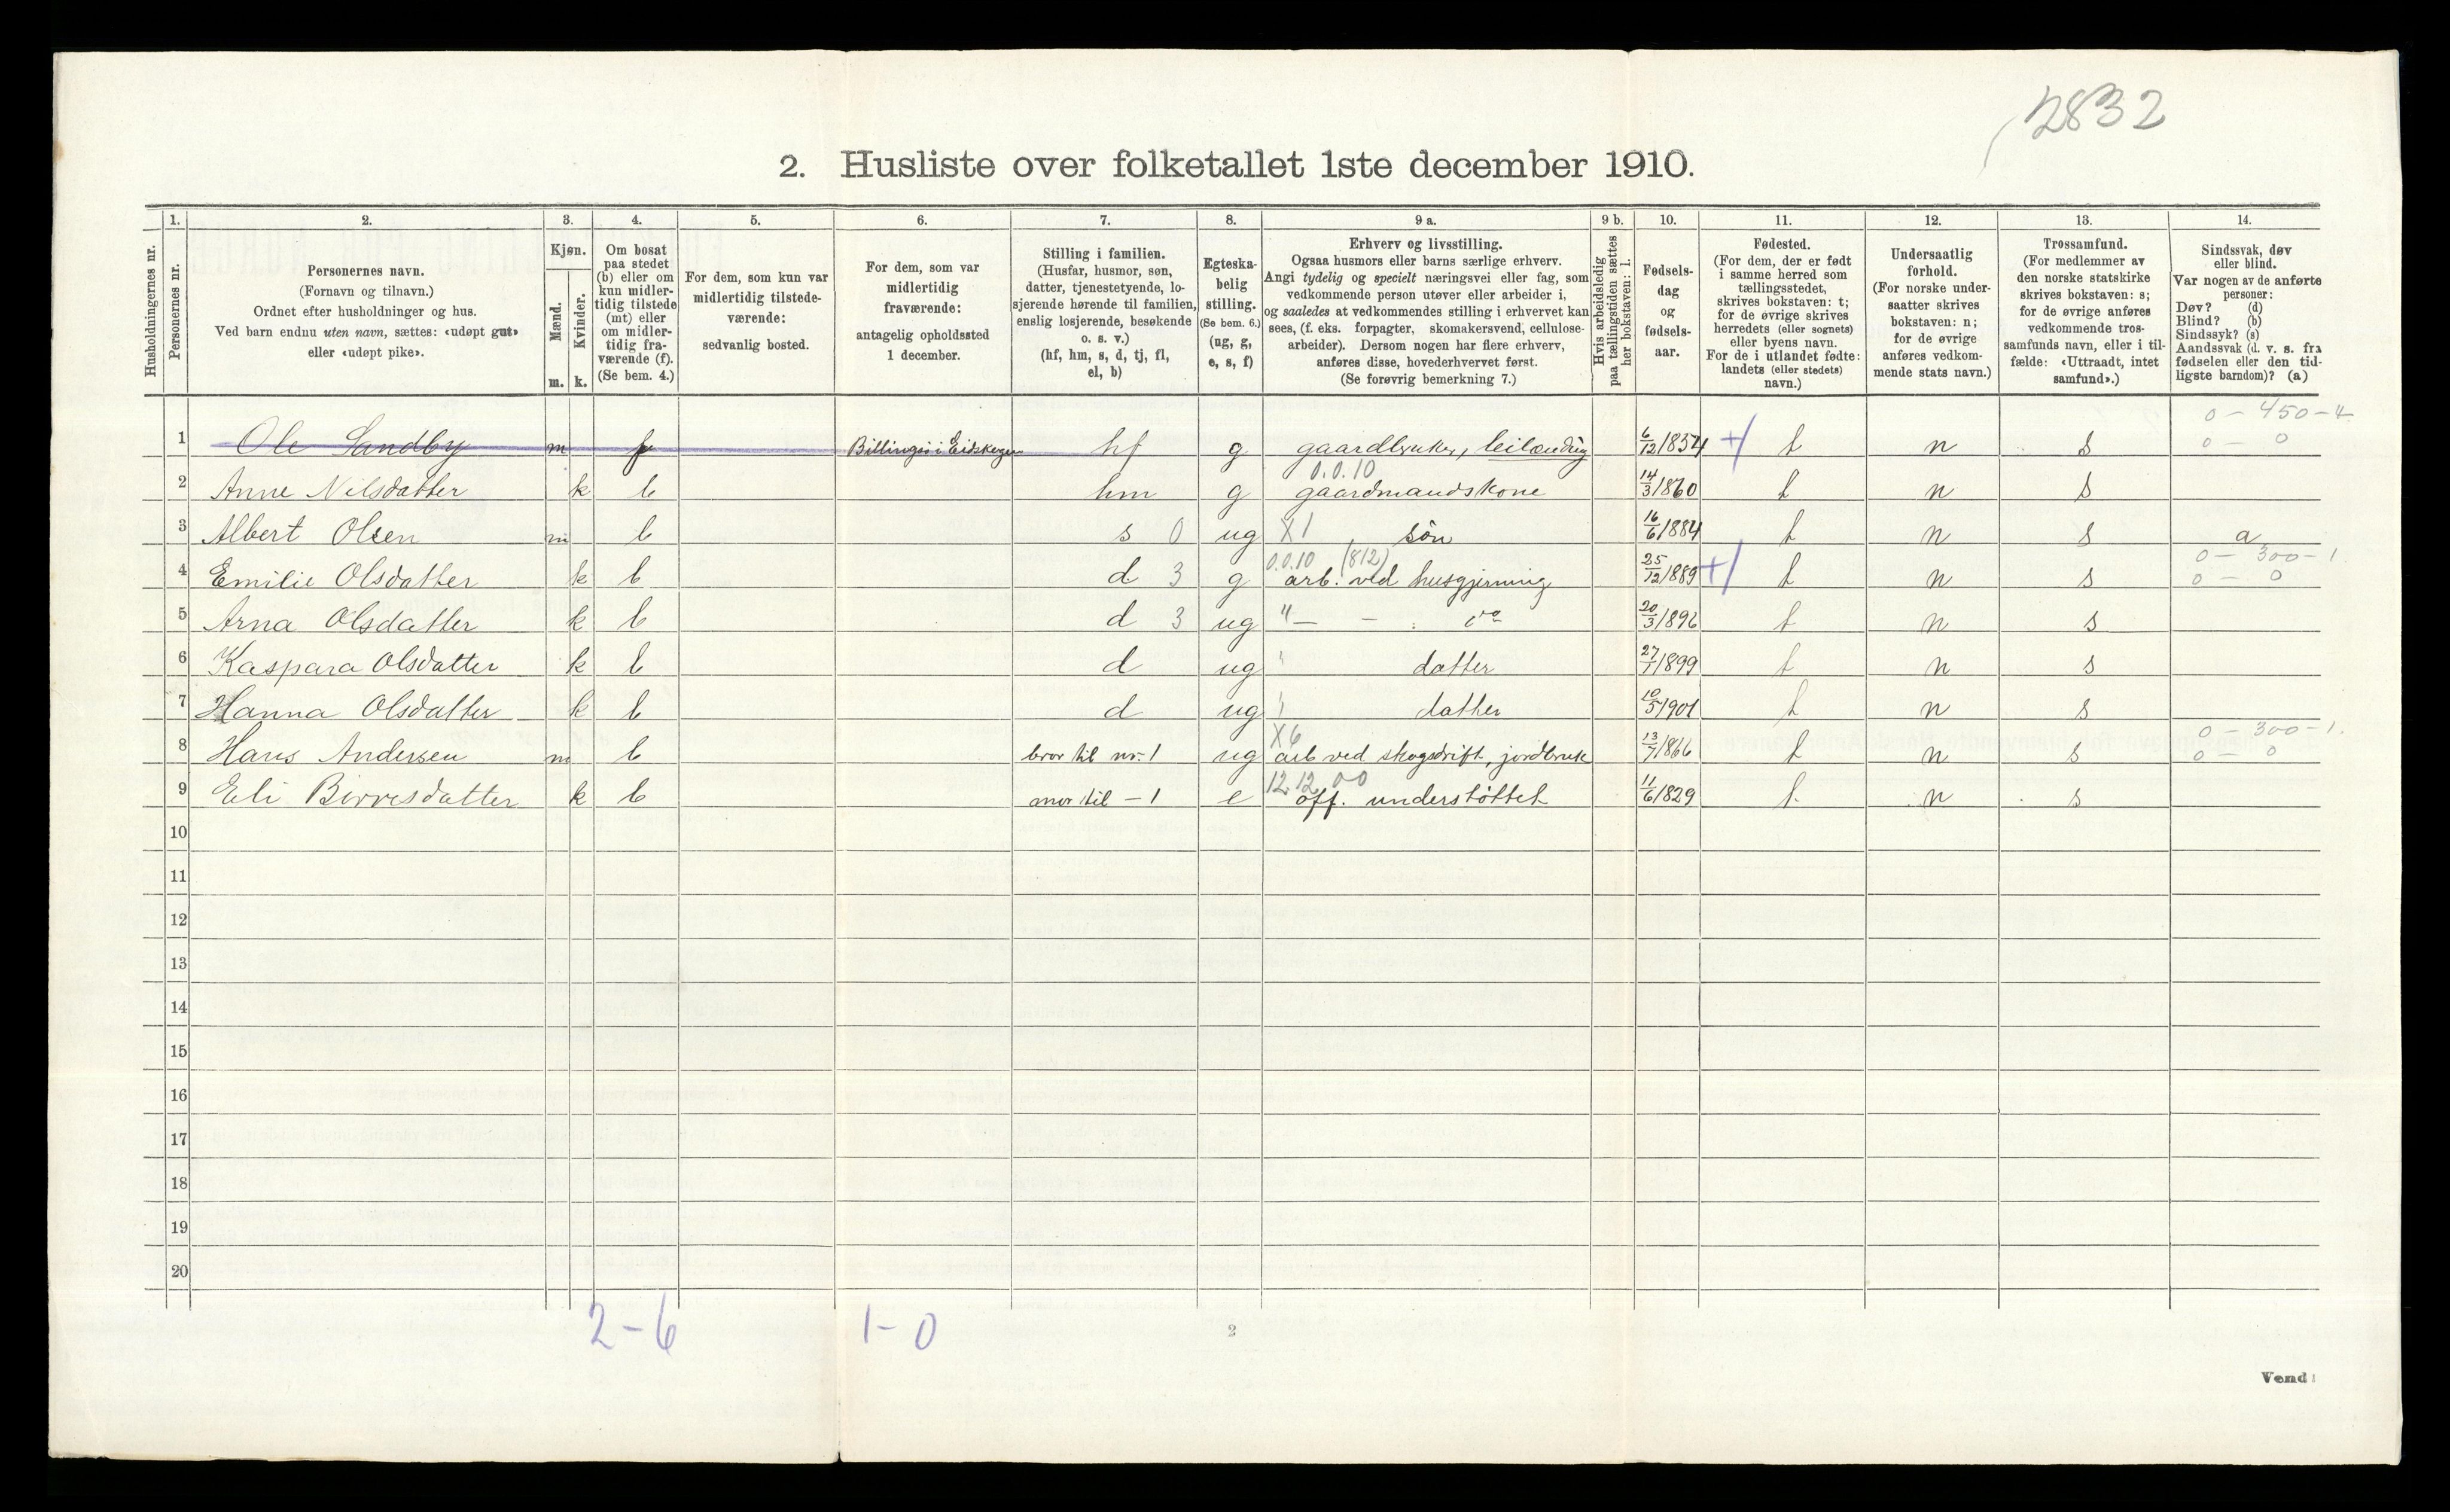 2832
2. Husliste over folketallet 1ste december 1910.
1. 2. 3. 4. 5. 6. 7. 8. 9 a. 9 b. 10. 11. 12. 13. 14.
Husholdningernes nr.
Personernes nr.
Personernes navn.
(Fornavn og tilnavn.)
Ordnet efter husholdninger og hus.
Ved barn endnu uten navn, sættes: «udøpt gut»
eller «udøpt pike».
Kjøn.
Mænd.
Kvinder.
m. k.
Om bosat
paa stedet
(b) eller om
kun midler-
tidig tilstede
(mt) eller
om midler-
tidig fra-
værende (f).
(Se bem. 4.)
For dem, som kun var
midlertidig tilstede-
værende:
sedvanlig bosted.
For dem, som var
midlertidig
fraværende:
antagelig opholdssted
1 december.
Stilling i familien.
(Husfar, husmor, søn,
datter, tjenestetyende, lo-
sjerende hørende til familien,
enslig losjerende, besøkende
o. s. v.)
(hf, hm, s, d, tj, fl,
el, b)
Egteska-
belig
stilling.
(Se bem. 6.)
(ug, g,
e, s, f)
Erhverv og livsstilling.
Ogsaa husmors eller barns særlige erhverv.
Angi tydelig og specielt næringsvei eller fag, som
vedkommende person utøver eller arbeider i,
og saaledes at vedkommendes stilling i erhvervet kan
sees, (f. eks. forpagter, skomakersvend, cellulose-
arbeider). Dersom nogen har flere erhverv,
anføres disse, hovederhvervet først.
(Se forøvrig bemerkning 7.)
Hvis arbeidsledig
paa tællingstiden sættes
her bokstaven: l.
Fødsels-
dag
og
fødsels-
aar.
Fødested.
(For dem, der er født
i samme herred som
tællingsstedet,
skrives bokstaven: t;
for de øvrige skrives
herredets (eller sognets)
eller byens navn.
For de i utlandet fødte:
landets (eller stedets)
navn.)
Undersaatlig
forhold.
(For norske under-
saatter skrives
bokstaven: n;
for de øvrige
anføres vedkom-
mende stats navn.)
Trossamfund.
(For medlemmer av
den norske statskirke
skrives bokstaven: s;
for de øvrige anføres
vedkommende tros-
samfunds navn, eller i til-
fælde: «Uttraadt, intet
samfund».)
Sindssvak, døv
eller blind.
Var nogen av de anførte
personer:
Døv? (d)
Blind? (b)
Sindssyk? (s)
Aandssvak (d. v. s. fra
fødselen eller den tid-
ligste barndom)? (a)
0 - 450 - 4
1 Ole Sandby m f Billingsö i Eidskogen hf g gaardbruker, leilænding 6/12 1854 + t n s 0 - 0
0.0.10
2 Anne Nilsdatter k b hm g gaardmandskone 14/3 1860 t n s
3 Albert Olsen m b s 0 ug X1 sön 16/6 1884 t n s a
0.0.10 (812) 0 - 300 - 1
4 Emilie Olsdatter k b d 3 g arb. ved husgjerning 25/12 1889 + t n s 0 - 0
5 Arna Olsdatter k b d 3 ug " — - do 20/3 1896 t n s
6 Kaspara Olsdatter k b d ug datter 27/1 1899 t n s
7 Hanna Olsdatter k b d ug datter 10/5 1901 t n s
X6 0 - 300 - 1.
8 Hans Andersen m b bror til nr. 1 ug arb ved skogsdrift, jordbruk 13/7 1866 t n s 0 - 0
12.12.00
9 Eli Birresdatter k b mor til - 1 e off. understöttet 11/6 1829 t n s
10
11
12
13
14
15
16
17
18
19
20
2 - 6 1 - 0
2
Vend!